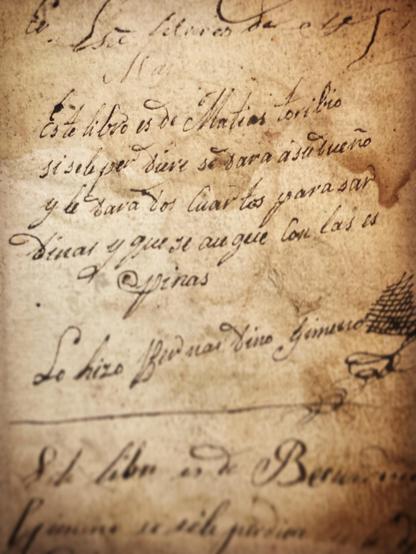 Este libro es de
Este libro es de Matias toribio
si sele per diere se dara asudueño
y le dara dos Cuartos para sar
dinas y que se augue Con las es
Spinas
Lo hizo Bernardino Gimeno
Este libro es de
se sele perdiera